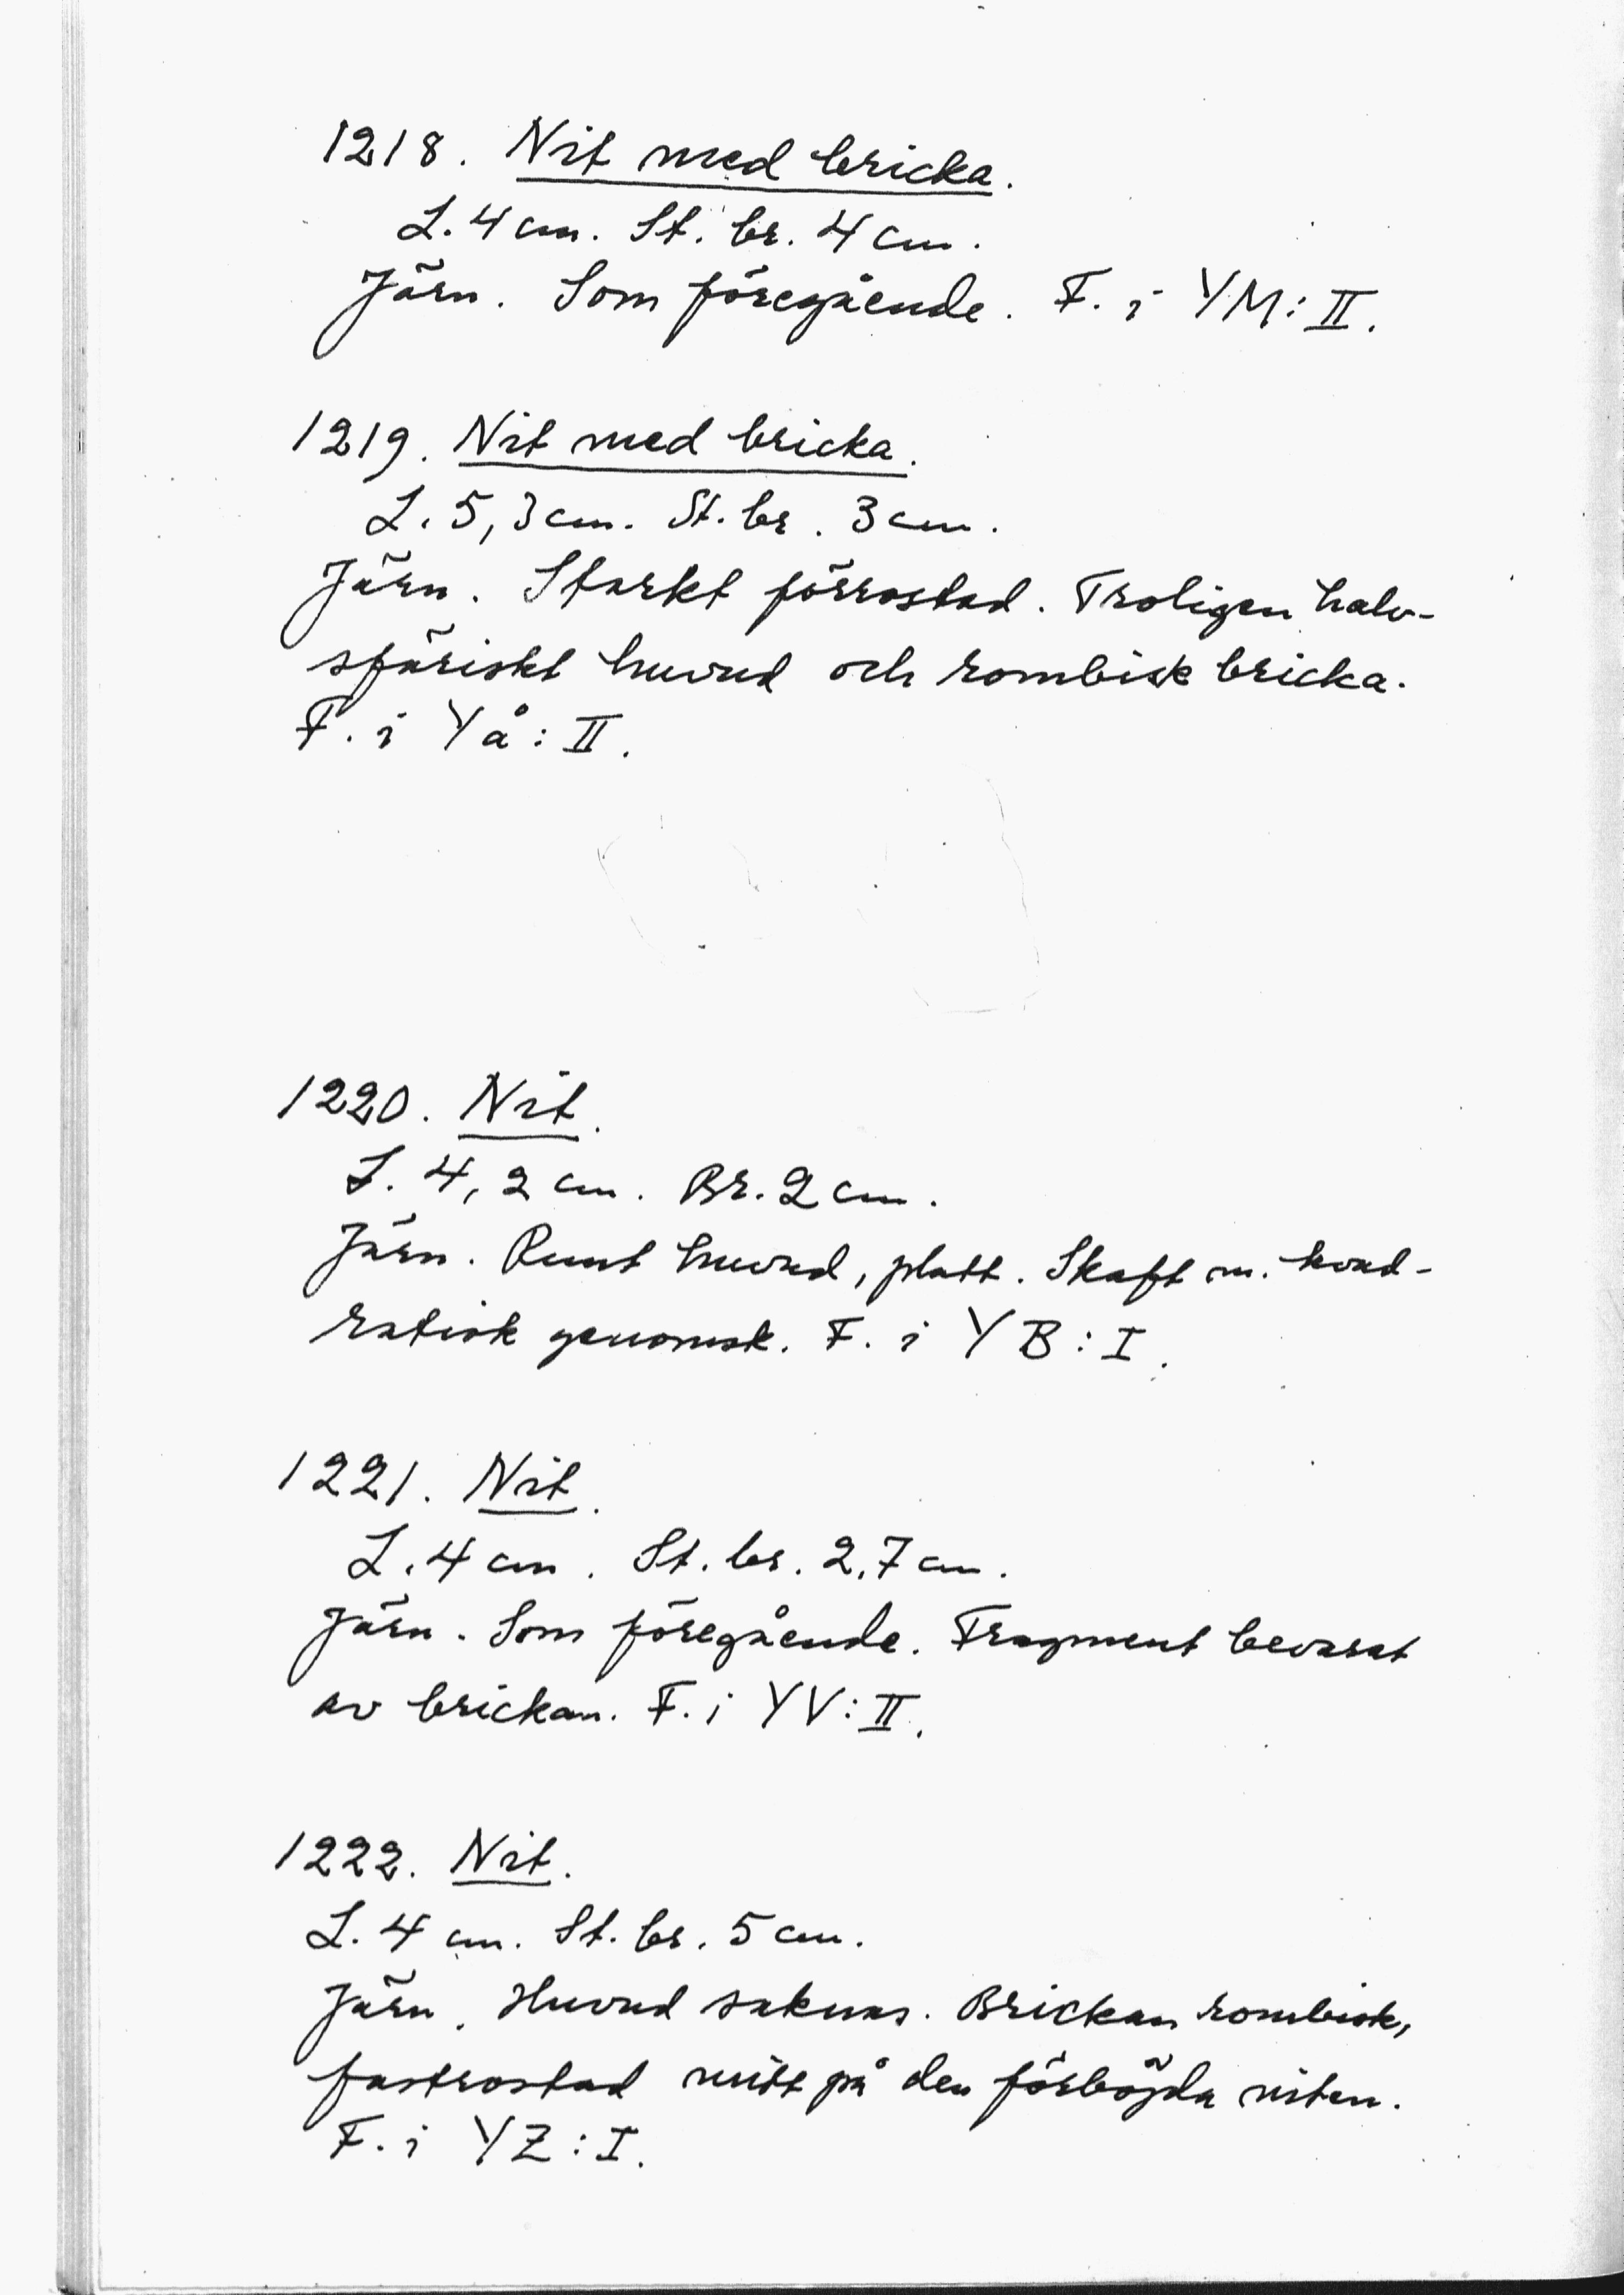 1218. Nit med bricka.
L. 4 cm. St. br. 4 cm.
Järn. Som föregående. F. i YM: II.
1219. Nit med bricka.
L. 5,3 cm. St. br. 3 cm.
Järn. Starkt förrostad. Troligen halv-
sfäriskt huvud och rombisk bricka.
F. i Yå: II.
1220. Nit.
L. 4,2 cm. Br. 2 cm.
Järn. Runt huvud, platt. Skaft m. kvad-
ratisk genomsk. F. i YB: I.
1221. Nit.
L. 4 cm. St. br. 2,7 cm.
Järn. Som föregående. Fragment bevarat
av brickan. F. i YV: II.
1222. Nit.
L. 4 cm. St. br. 5 cm.
Järn. Huvud saknas. Brickan rombisk,
fastrostad mitt på den förböjda niten.
F. i YZ: I.